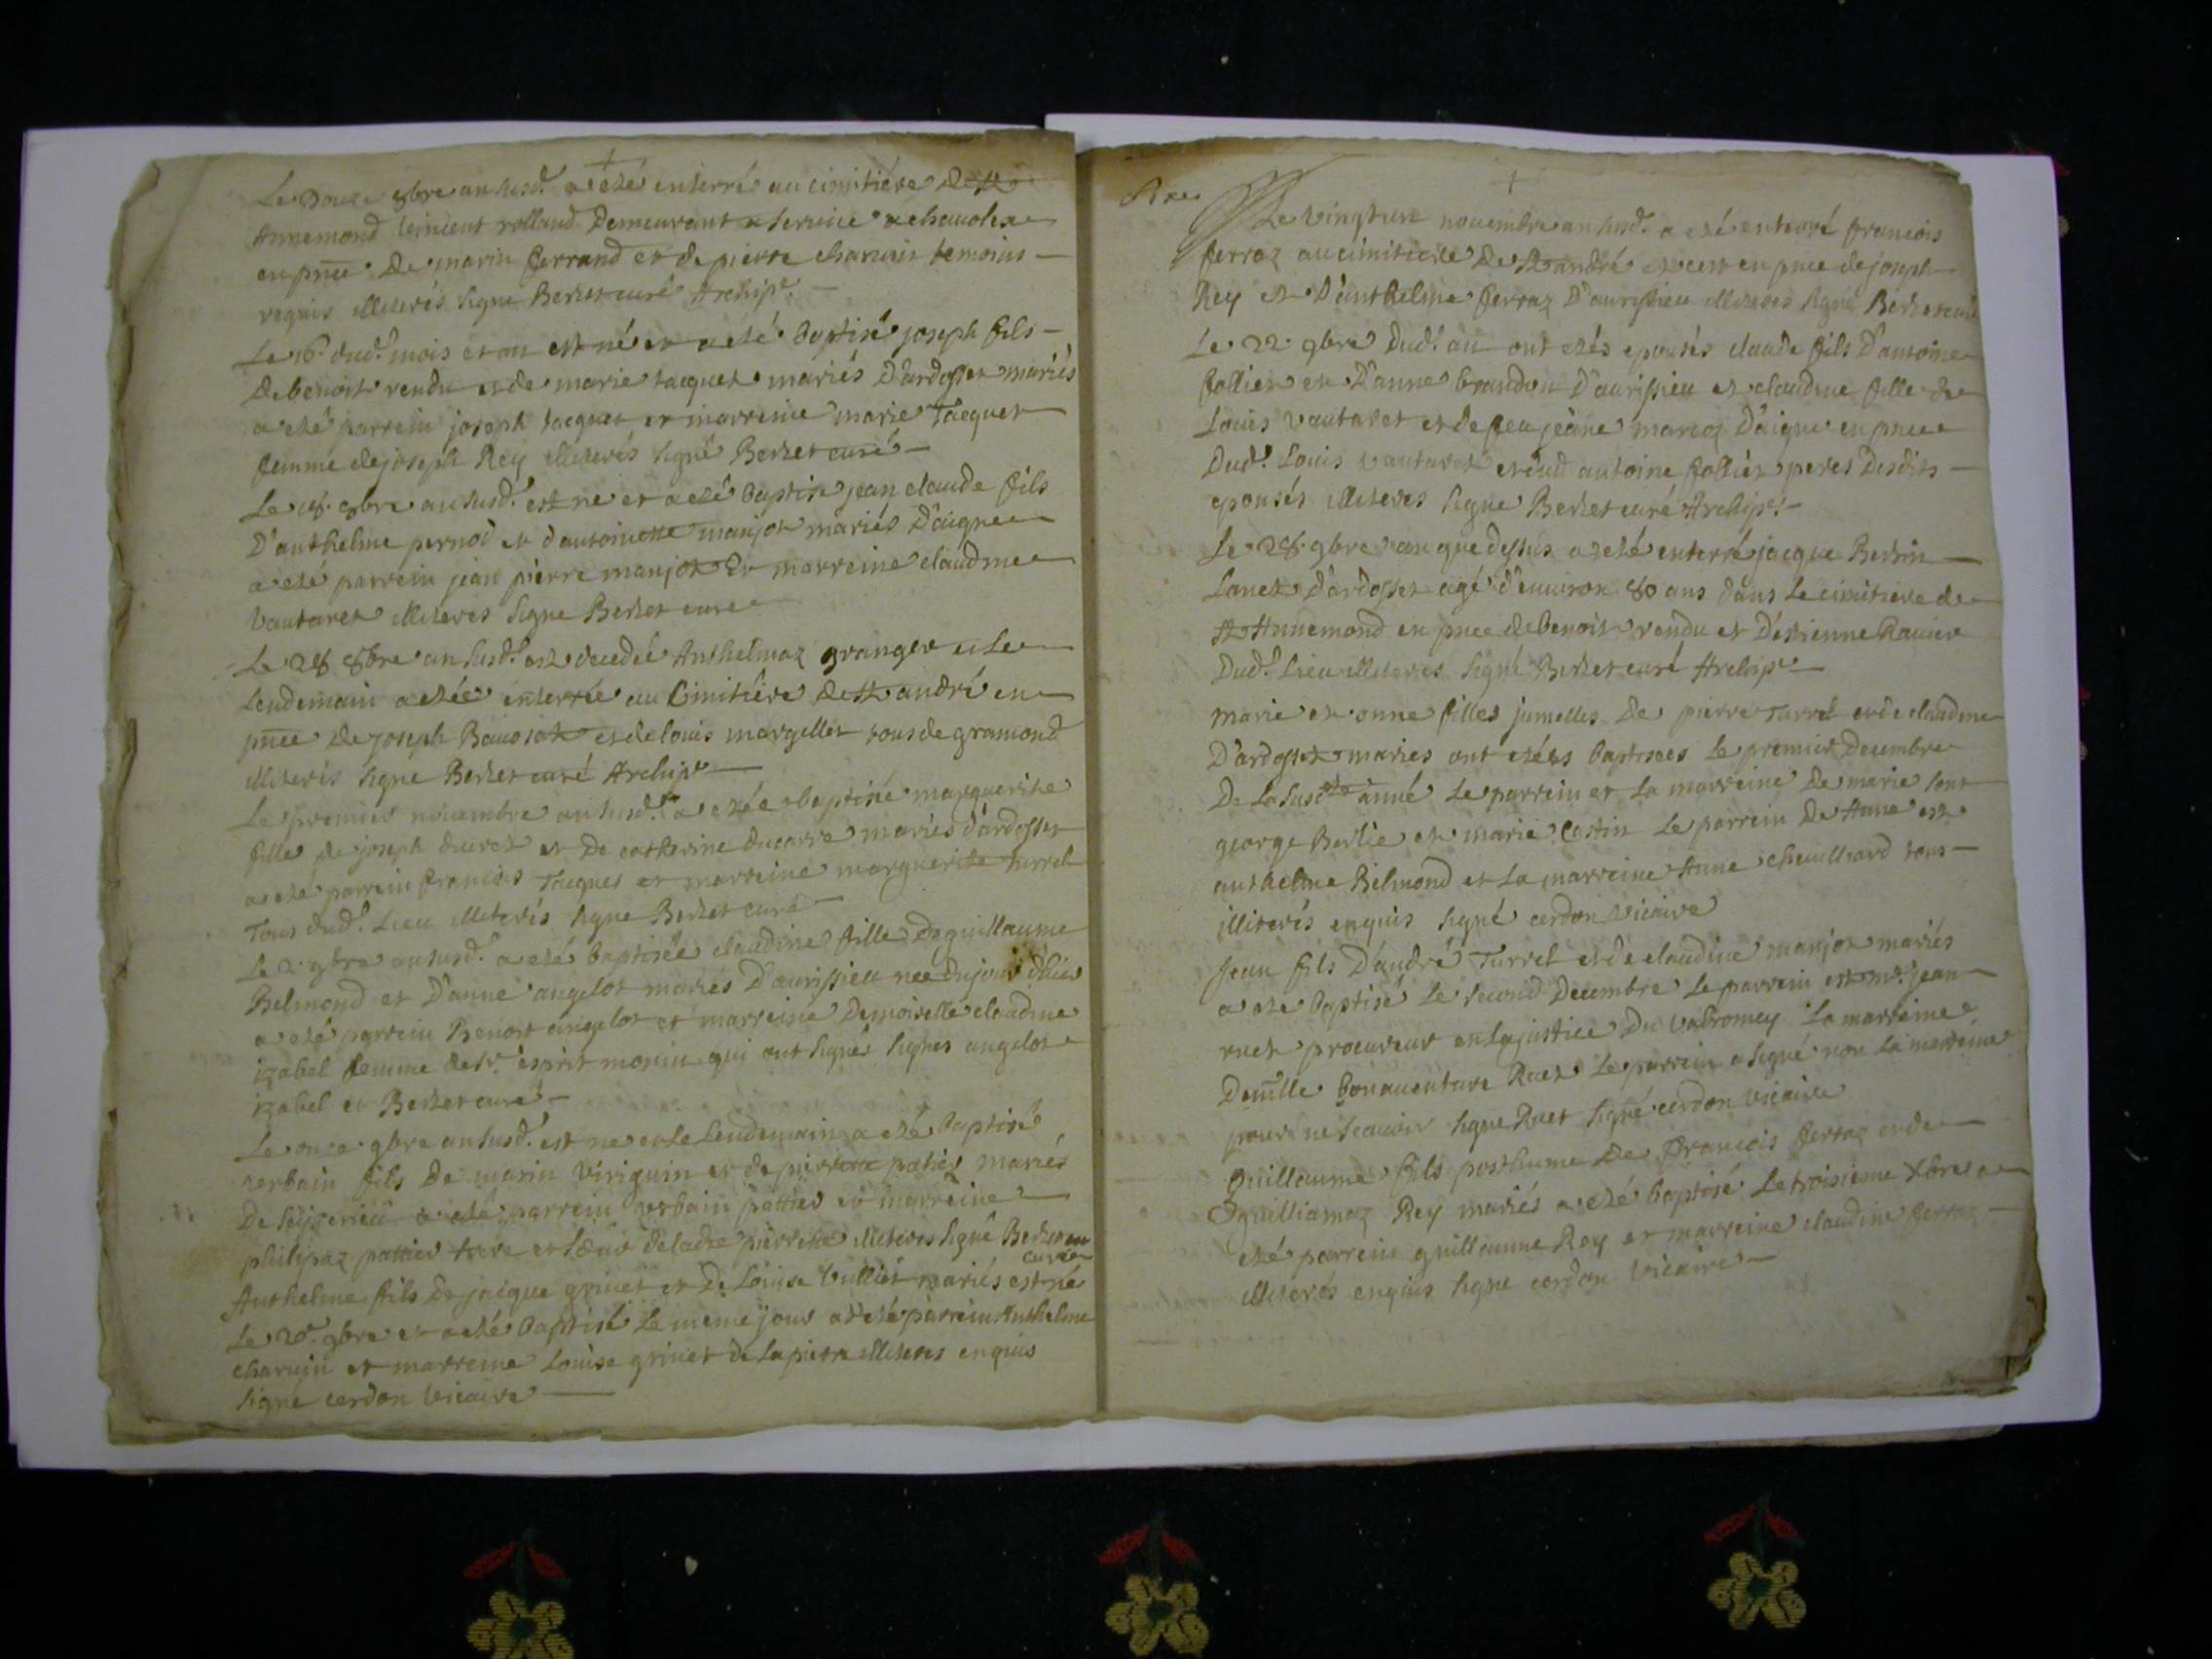 Le Douze 8bre an susd. a eté enterré au cimitiére de St
Annemond vincent rolland Demeurant a service a
en pnce De marin ferrand et de pierre charuin temoins
requis illiterés signe Berzet curé Archip.
Le 16. dud. mois et an est né et a eté Baptisé joseph fils
De benoist rendu et de marie tacquet mariés D'ardosset mariés
a eté parrein joseph tacquet et marreine marie Tacquet
femme de joseph Rey illiterés signé Berzet curé
Le 8bre an susd. est ne et a eté Baptisé jean claude fils
D'anthelme pernod et d'antoinette manjot mariés D'aigne
a eté parrein jean pierre manjot Et marreine claudine
Vautaret illiteres signe Berzet cure
Le 28 8bre an susd. est decedée Anthelmaz granger et le
lendemain a etée enterrée au Cimitiére de St andré en
pnce De joseph et de louis margellet tous de gramond
illiterés signe Berzet curé Archip
Le premier novembre an susd. a etée baptisée marguerite
fille de joseph ducret et De catherine ducarre mariés d'ardosset
a eté parrein francois Tacquet et marreine marguerite turrel
Tous dud. Lieu illiterés signe Berzet curé
Le 2. 9bre an susd. a eté baptisée claudine fille De guillaume
Belmond et D'anne angelot mariés D'aurissieu nee du jour d'hier
a eté parrein Benoit angelot et marreine Demoiselle claudine
izabel femme de sr. esprit monin qui ont signés signes angelot
izabel et Berzet curé
Le onze 9bre an susd. est ne et le Lendemain a eté Baptisé
verbain fils De marin Viriguin et de pierrette patier mariés
De a eté parrein vrbain pattier et marreine
philipaz pattier frere et soeur de ladte pierrette illiteres signé Berzet
curé
Anthelme fils De jacque grinet et De Louise Vulliet mariés est né
Le 20e. 9bre et a eté Baptisé Le meme jour a eté parrein Anthelme
charuin et marreine Louise grinet de Lapierre illiteres enquis
signe cerdon Vicaire
Le Vingtun novembre an susd. a eté enterré francois
ferraz au cimitiere De St andré et c'est en pnce de joseph
Rey et D'anthelme ferraz D'aurissieu illiteres signé Berzet curé
Le 22 9bre Dud. an ont etés epousés claude fils D'antoine
follier et D'anne brandon D'aurissieu et claudine fille de
Louis Vautaret et de feu jeane marcoz D'aigne en pnce
Dud. Louis Vautaret et dud antoine follier peres Desdits
epousés illiteres signe Berzet curé Archip.
Le 28. 9bre an que dessus a eté enterré jacque Bertin
Lanet D'ardosset agé d'environ 80 ans dans Le cimitiere de
St Annemond en pnce de benoit rendu et D'etienne Rauier
Dud. Lieu illiteres signé Berzet curé Archip
marie et anne filles jumelles De pierre Turrel et de claudine
D'ardosset maries ont etées baptisees Le premier Decembre
De La susdte anné Le parrein et La marreine De marie sont
george Berlie et marie Castin Le parrein De Anne est
anthelme Belmond et La marreine Anne cheuilliard tous
illiterés enquis signé cerdon Vicaire
Jean fils D'andré Turrel et de claudine manjot mariés
a ete baptisé Le second Decembre Le parrein est mr. jean
ruet procureur en La justice Du Valromey La marreine
Demlle bonauenture Ruet Le parrein a signé non La marreine
pour ne scauoir signe Ruet signé cerdon Vicaire
Guillaume fils posthume De Francois ferraz et de
guilliamaz Rey mariés a eté baptisé Le troisieme Xbre a
eté parrein guillaume Rey et marreine claudine ferraz
illiterés enquis signe cerdon Vicaire